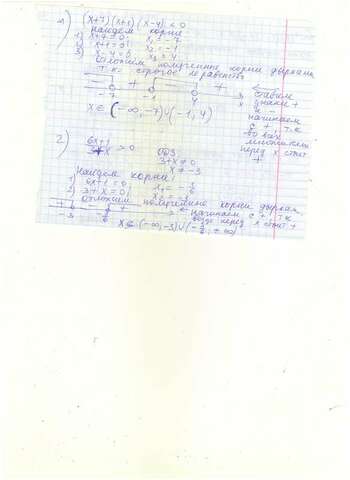 1) (x+7)(x+1)(x-4) < 0
Находим корни:
1) x+7=0; x₁=-7
2) x+1=0; x₂=-1
3) x-4=0; x₃=4
Отложим полученные корни дырками,
т.к. строгое неравенство
- + - +
-7 -1 4 x
ставим
знаки +
и -
начинаем
с +, т.к.
во всех
множителях
перед x стоит
+
x ∈ (-∞, -7) ∪ (-1, 4)
2) 6x+1 / 3+x > 0 ОДЗ
3+x ≠ 0
x ≠ -3
Находим корни:
1) 6x+1=0; x₁=-1/6
2) 3+x=0; x₂=-3
Отложим полученные корни дырками,
+ - +
-3 -1/6
начинаем с +, т.к.
везде перед x стоит +
x ∈ (-∞, -3) ∪ (-1/6; +∞)